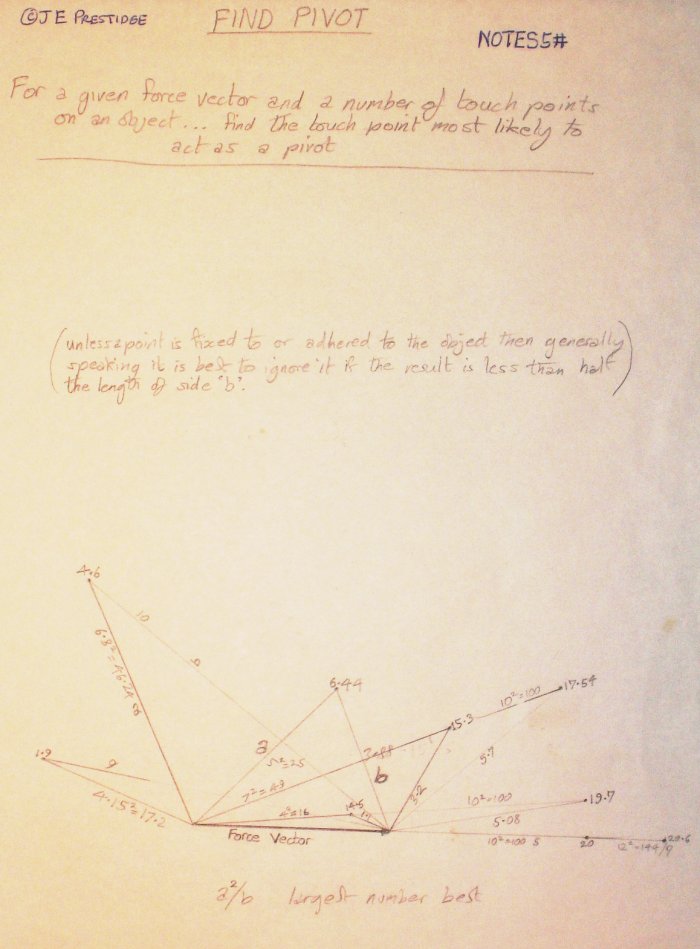 ©J E PRESTIDGE
FIND PIVOT
NOTES 5#
For a given force vector and a number of touch points
on an object... find the touch point most likely to
act as a pivot
(unless a point is fixed to or adhered to the object then generally
speaking it is best to ignore it if the result is less than half
the length of side "b".)
4.6
10
a
6.8²=46.24
6.44
10²=100
17.54
15.3
1.9
9
a
5²=25
b
5.7
7²=49
3.2
4.15²=17.2
4²=16
14.5
10²=100
19.7
5.08
Force Vector
10²=100
5
20
12²=144/9
20.6
a²/b largest number best